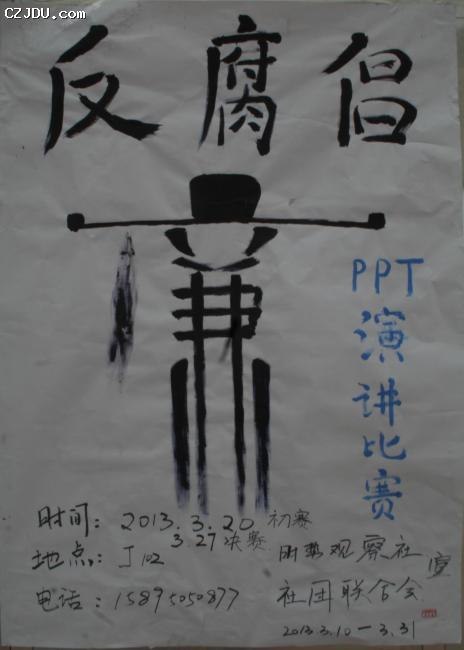 CZJDU.com
反腐倡
廉
PPT
演讲比赛
时间：2013.3.20 初赛
3.27 决赛
地点：J102
电话：15895050877
时势观察社
社团联合会 宣
2013.3.10—3.31